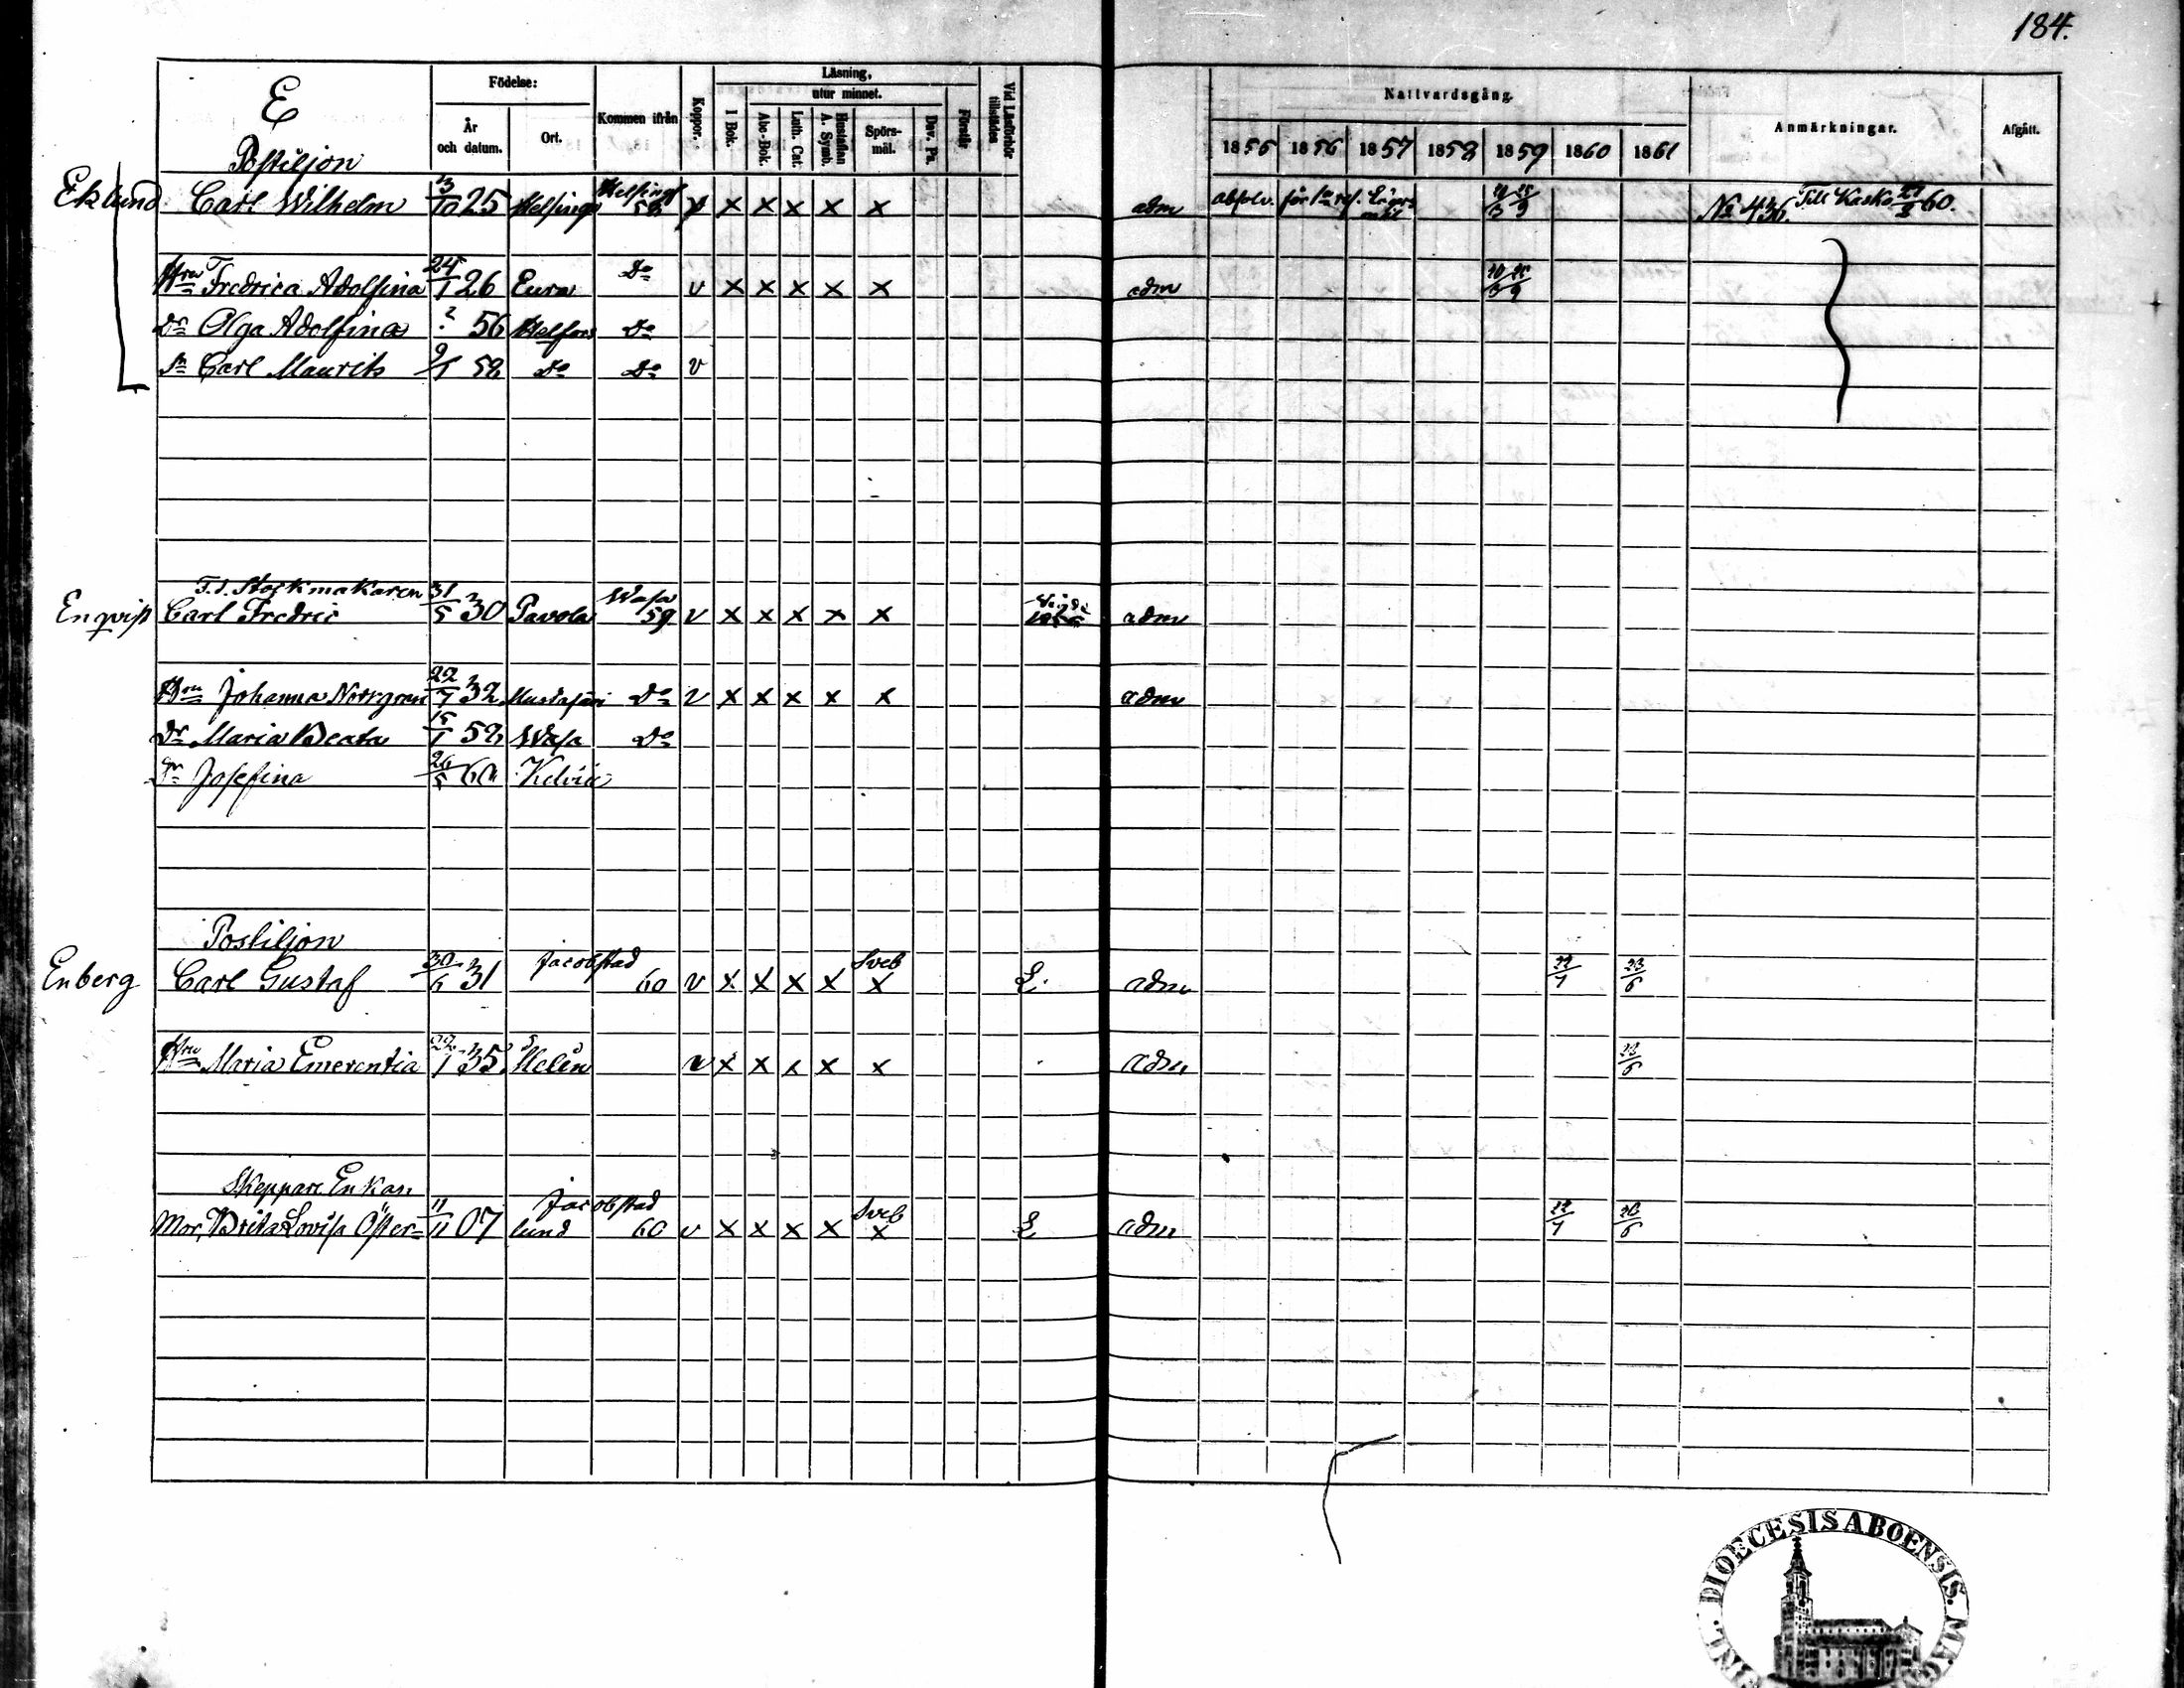 184.
E
Födelse:
År och datum.
Ort.
Kommen ifrån
Koppor.
Läsning,
I Bok.
utur minnet.
Abc-Bok.
Luth. Cat.
Hustaflan A. Symb.
Spörs-mål.
Dav. Ps.
Förstår
Vid Läsförhör tillstädes.
Nattvardsgång.
1855 1856 1857 1858 1859 1860 1861
Anmärkningar.
Afgått.
Postiljon
Eklund Carl Wilhelm 3/10 25 Helsingf Helsingf 58 v x x x x x adm absolv. för 1a resf. Lägers 11/3 25/9 No 436. Till Kasko 27/3 60.
Hru Fredrica Adolfina 24/1 26 Eura Do v x x x x x adm
Dr Olga Adolfina ? 56 Helfors Do
Sn Carl Maurits 9/1 58 Do Do v
F.d. Stockmakaren
Enqvist Carl Fredric 31/5 30 Pavola Wasa 59 v x x x x x adm
Hru Johanna Norrgran 22/7 32 Mustasaari Do v x x x x x adm
Dr Maria Beata 15/1 58 Wasa Do
Dr Josefina 26/5 60 Kelviå
Postiljon
Enberg Carl Gustaf 30/6 31 Jacobstad 60 v x x x x Sveb x L. adm 22/7 23/6
Hru Maria Emerentia 22/1 35 Helén v x x x x x adm 23/6
Skeppare Enkan
Mor, Brita Lovisa Öster= 11/11 07 lund Jacobstad 60 v x x x x Sveb x L adm 22/7 23/6
DIOECESIS ABOENSIS.